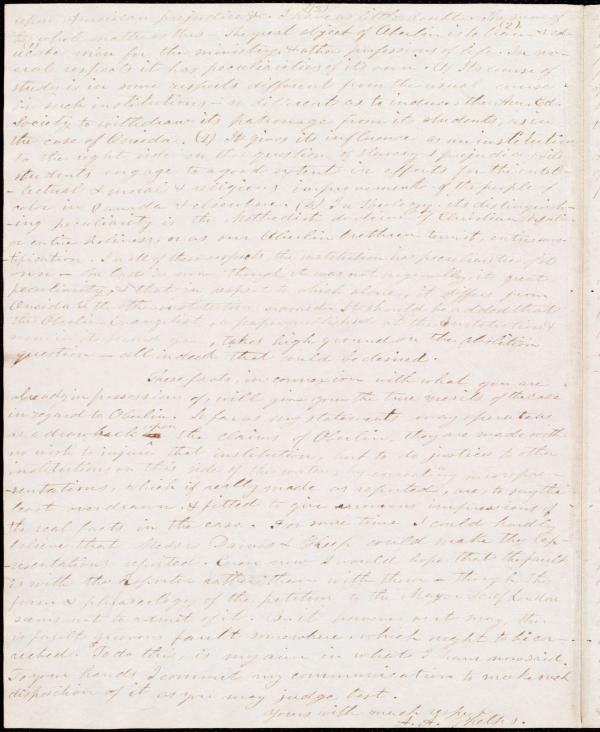 upon American prejudice &c. I have as little doubt. The
which matter is thus — The great object of Oberlin is to & ed-
ucate men for the ministry & other professions of life. In sev-
eral respects it has peculiarities of its own. (1) Its course of
study is in some respects different from the usual course
in such institutions — so different as to induce the Am. Ed.
Society to withdraw its patronage from its students, as in
the case of Oneida. (2) It gives its influence as an institution
to the right side on the question of slavery & prejudice, & its
students engage to a good extent in efforts for the intel-
-lectual & moral & religious improvement of the people of
color in Canada & elsewhere. (3) In theology, its distinguish-
-ing peculiarity is the Methodist doctrine of Christian
or entire holiness, or as our Oberlin brethren term it, entire sanc-
-tification. In all of these respects the institution has peculiarities of its
own — the last is now though it was not originally, its great
peculiarity, & that in respect to which alone, it differs from
Oneida & the other institutions named. It should be added that
the Oberlin Evangelist, a paper published at the Institution &
now in its second year, takes high ground on the abolition
question — all indeed that could be desired.
These facts, in connexion with what you are
already in possession of, will give you the true merits of the case
in regard to Oberlin. So far as my statements may operate as
as a drawback upon the claims of Oberlin, they are made with
no wish to injure that institution, but to do justice to other
institutions on this side of the water, by correcting misrepre-
-sentations, which if really made as reported, are, to say the
least overdrawn & fitted to give erroneous impressions of
the real facts in the case. For some time I could hardly
believe that Messrs Dawes & Keep could make the rep-
-resentations reported. Even now I would hope that the fault
is with the reporter rather than with them — though the
form & phraseology of the petition to the Mayor &c of London
seems not to admit of it. But it as it may, there
is fault, grievous fault somewhere, which ought to be cor-
-rected. To do this, is my aim in what I have now said.
To your hands I commit my communication to make such
disposition of it as you may judge best.
Yours with much respect
A. A. Phelps.